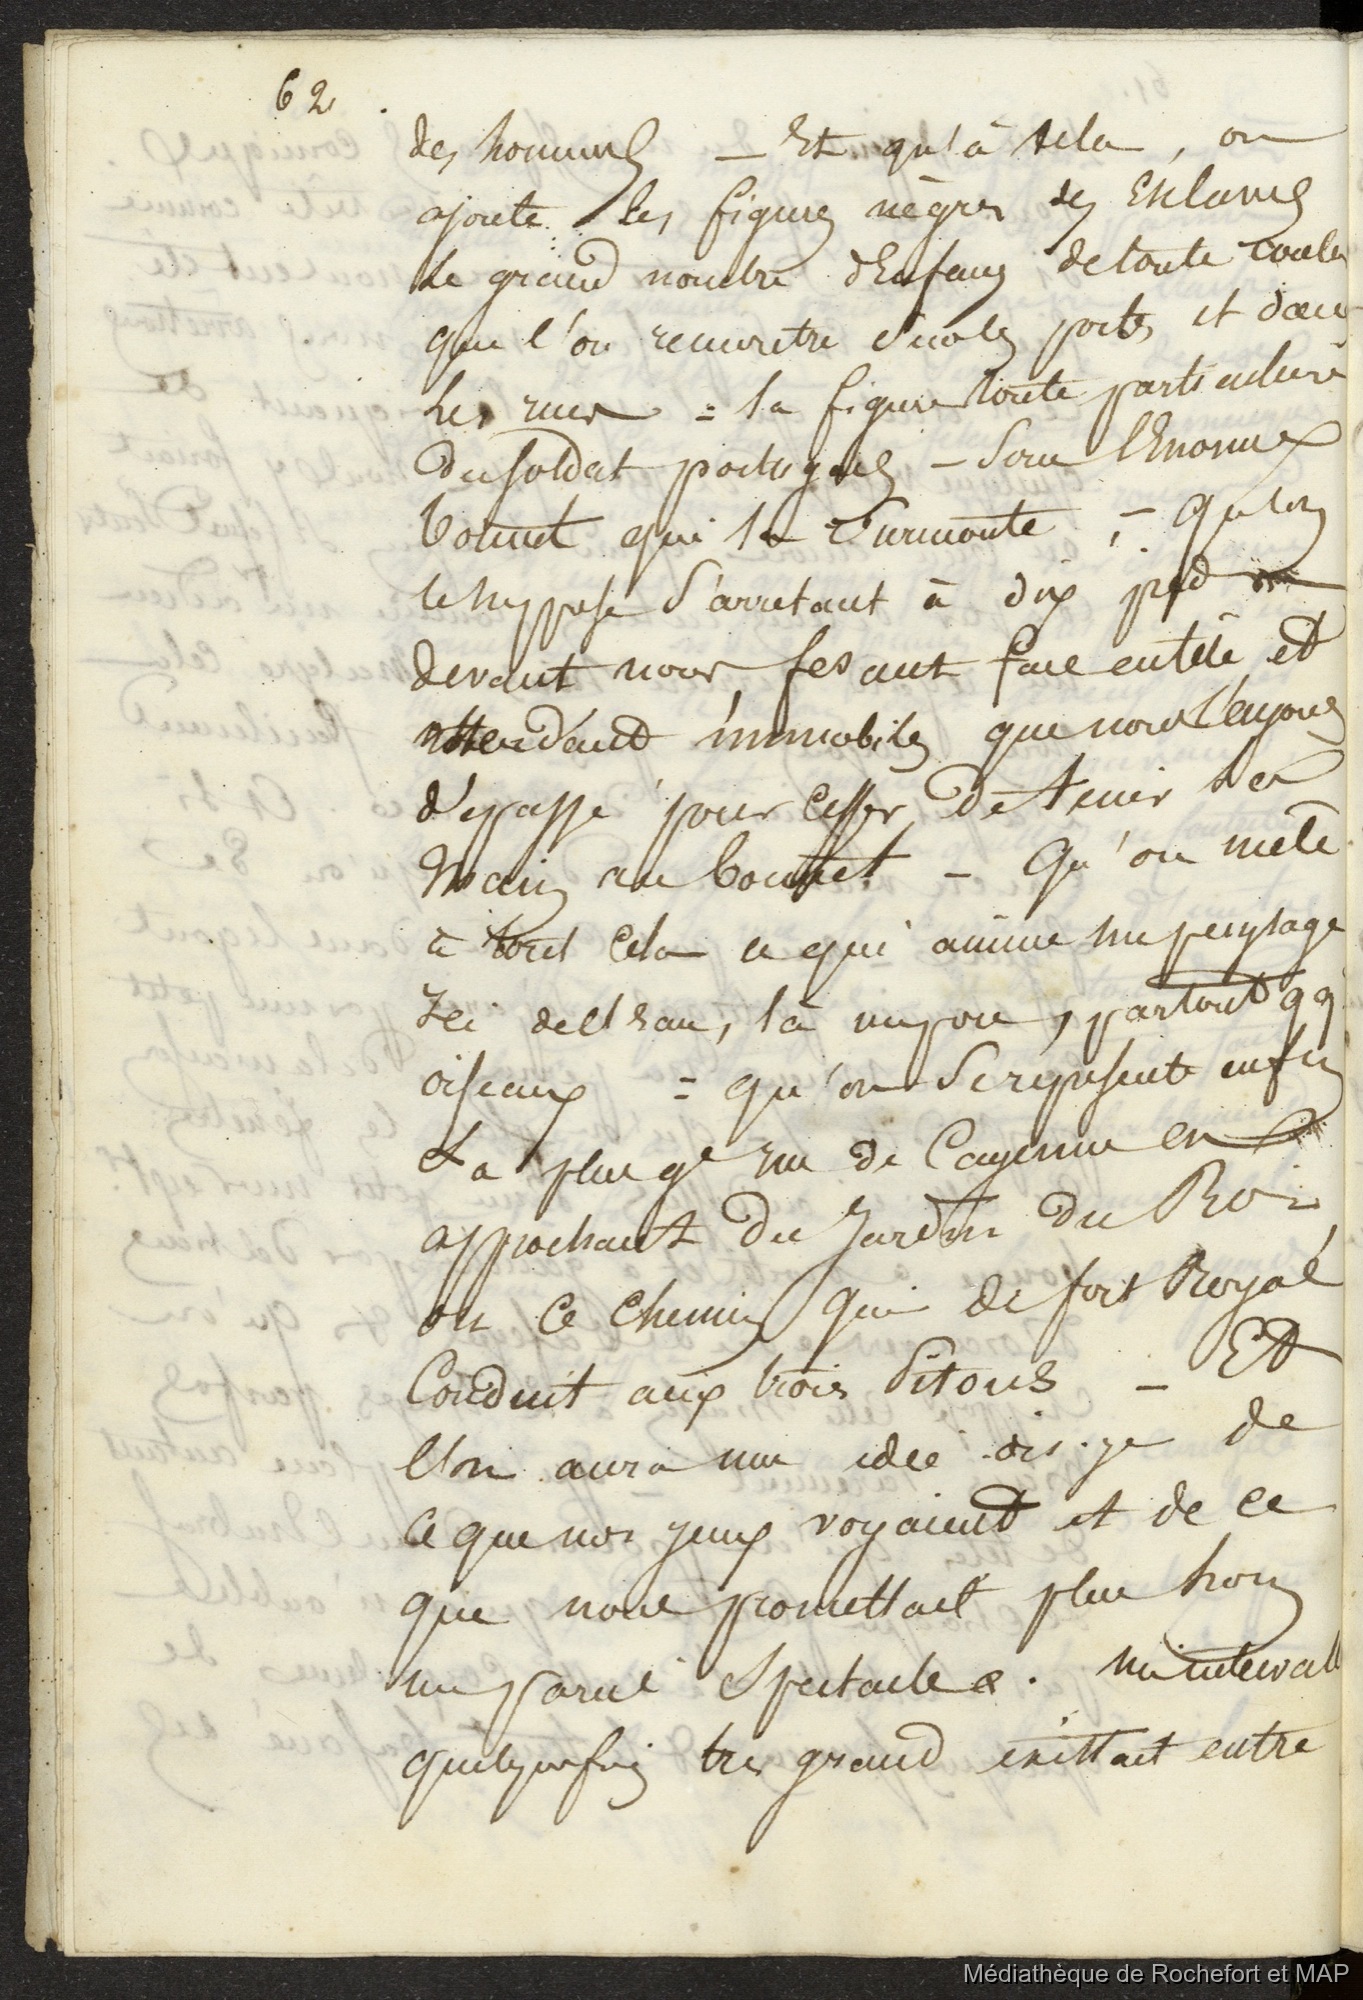 62.
des hommes — Et qu'à cela, on
ajoute les figures nègres des Esclaves
le grand nombre d'Enfans de toute couleur
que l'on rencontre sur les portes et dans
les rues = la figure toute particulière
du soldat portugais — sous l'Enorme
bonnet qui la surmonte ; — qu'on
le suppose s'arretant à dix pas
devant nous, fesant face en tête et
attendant immobile que nous l'ayons
dépassé pour cesser de tenir sa
main au bonnet — Qu'on mêle
à tout cela ce qui anime un paysage
Ici de l'eau, là un pont, partout qq
oiseaux = qu'on se represente enfin
La plus gde rue de Cayenne en
approchant du Jardin du Roi
ou ce chemin qui de fort Royal
Conduit aux trois Pitons — Et
l'on aura une idée dis-je de
ce que nos yeux voyaient et de ce
que nous promettait plus loin
un pareil spectacle. un intervalle
quelquefois tres grand existait entre
Médiathèque de Rochefort et MAP